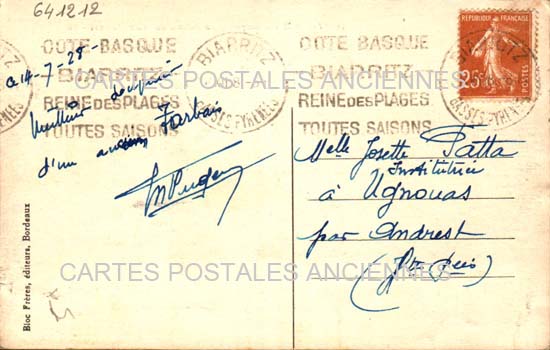 641212
COTE-BASQUE
BIARRITZ
REINE DES PLAGES
TOUTES SAISONS
BIARRITZ
BASSES-PYRENEES
COTE BASQUE
BIARRITZ
REINE DES PLAGES
TOUTES SAISONS
BIARRITZ
BASSES-PYRENEES
RÉPUBLIQUE FRANÇAISE
25c
POSTES
14-7-28-
Meilleur souvenir
d'un ancien Tarbais
Melle Josette Patta
Institutrice
à Ugnouas
par Andrest
(Htes Pées)
CARTES POSTALES ANCIENNES
CARTES POSTALES ANCIENNES
Bloc Frères, éditeurs, Bordeaux